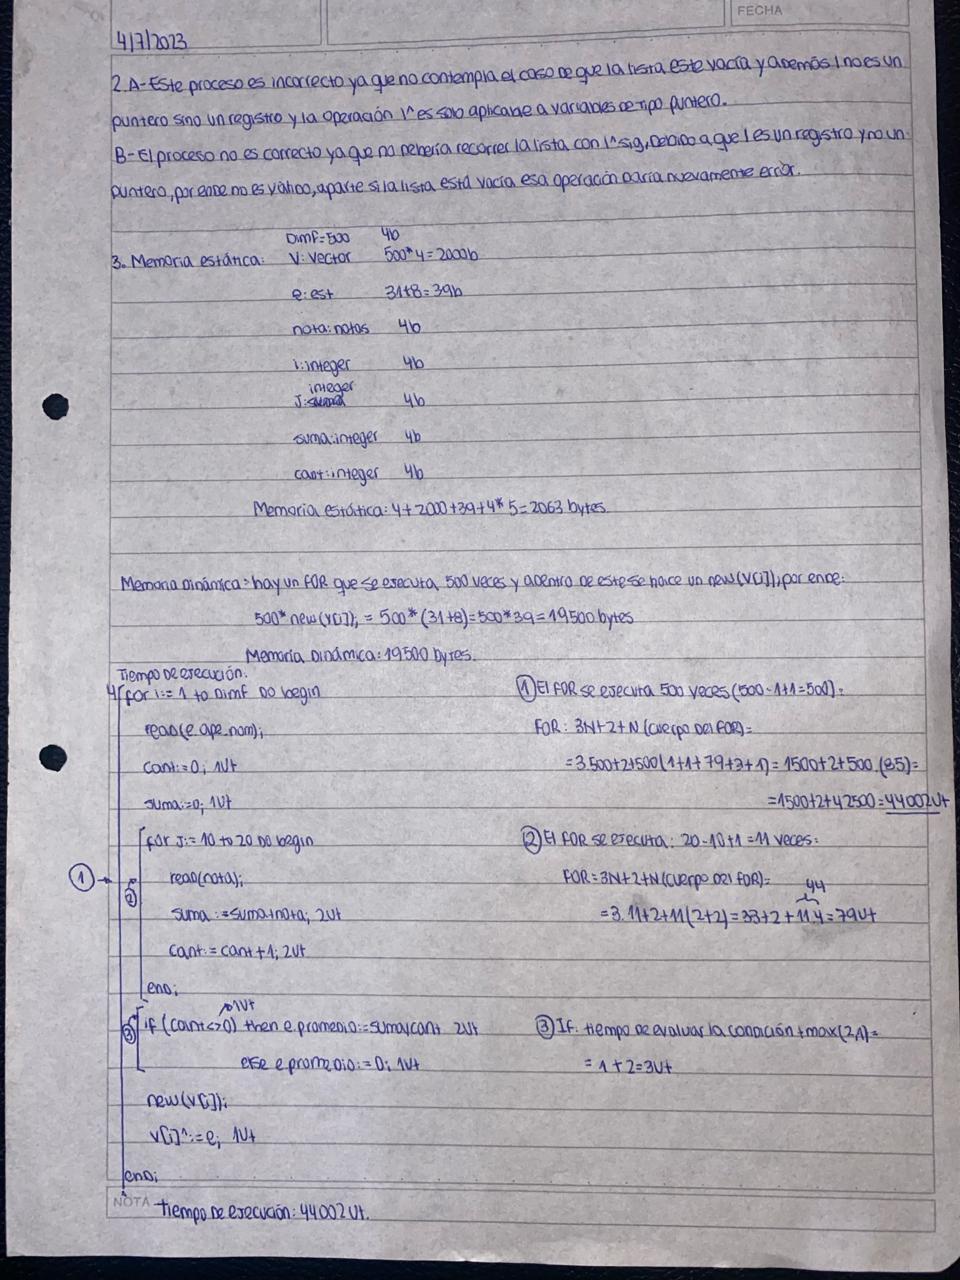 FECHA
4/7/2023
2. A-Este proceso es incorrecto ya que no contempla el caso de que la lista este vacía y además l no es un
puntero sino un registro y la operación l^ es solo aplicable a variables de tipo puntero.
B-El proceso no es correcto ya que no debería recorrer la lista con l^sig, debido a que l es un registro y no un
puntero, por ende no es válido, aparte si la lista está vacía esa operación daría nuevamente error.
Dimf=500 4b
3. Memoria estática: V: vector 500*4=2000b
e: est 31+8=39b
nota: notas 4b
i: integer 4b
integer
J: 4b
suma: integer 4b
cant: integer 4b
Memoria estática: 4+2000+39+4*5=2063 bytes
Memoria Dinámica: hay un FOR que se ejecuta 500 veces y adentro de este se hace un new(v[i]), por ende:
500*new(v[i]); = 500*(31+8)=500*39=19500 bytes
Memoria Dinámica: 19500 bytes.
Tiempo de ejecución.
4 for i:= 1 to Dimf do begin
read(e.ape_nom);
cant:=0; 1Ut
suma:=0; 1Ut
for J:= 10 to 20 do begin
1
2
read(nota);
suma:=suma+nota; 2Ut
cant:= cant+1; 2Ut
end;
1Ut
3 if (cant<>0) then e.promedio:=suma/cant 2Ut
else e.promedio:=0; 1Ut
new(v[i]);
v[i]^:=e; 1Ut
end;
1 El FOR se ejecuta 500 veces (500-1+1=500):
FOR: 3N+2+N(cuerpo del FOR)=
=3.500+2+500(1+1+79+3+1)=1500+2+500.(85)=
=1500+2+42500=44002Ut
2 El FOR se ejecuta: 20-10+1=11 veces:
FOR=3N+2+N(cuerpo del FOR)=
44
=3.11+2+11(2+2)=33+2+11.4=79Ut
3 If: tiempo de evaluar la condición+max(2,1)=
= 1+2=3Ut
NOTA
Tiempo de ejecución: 44002 Ut.